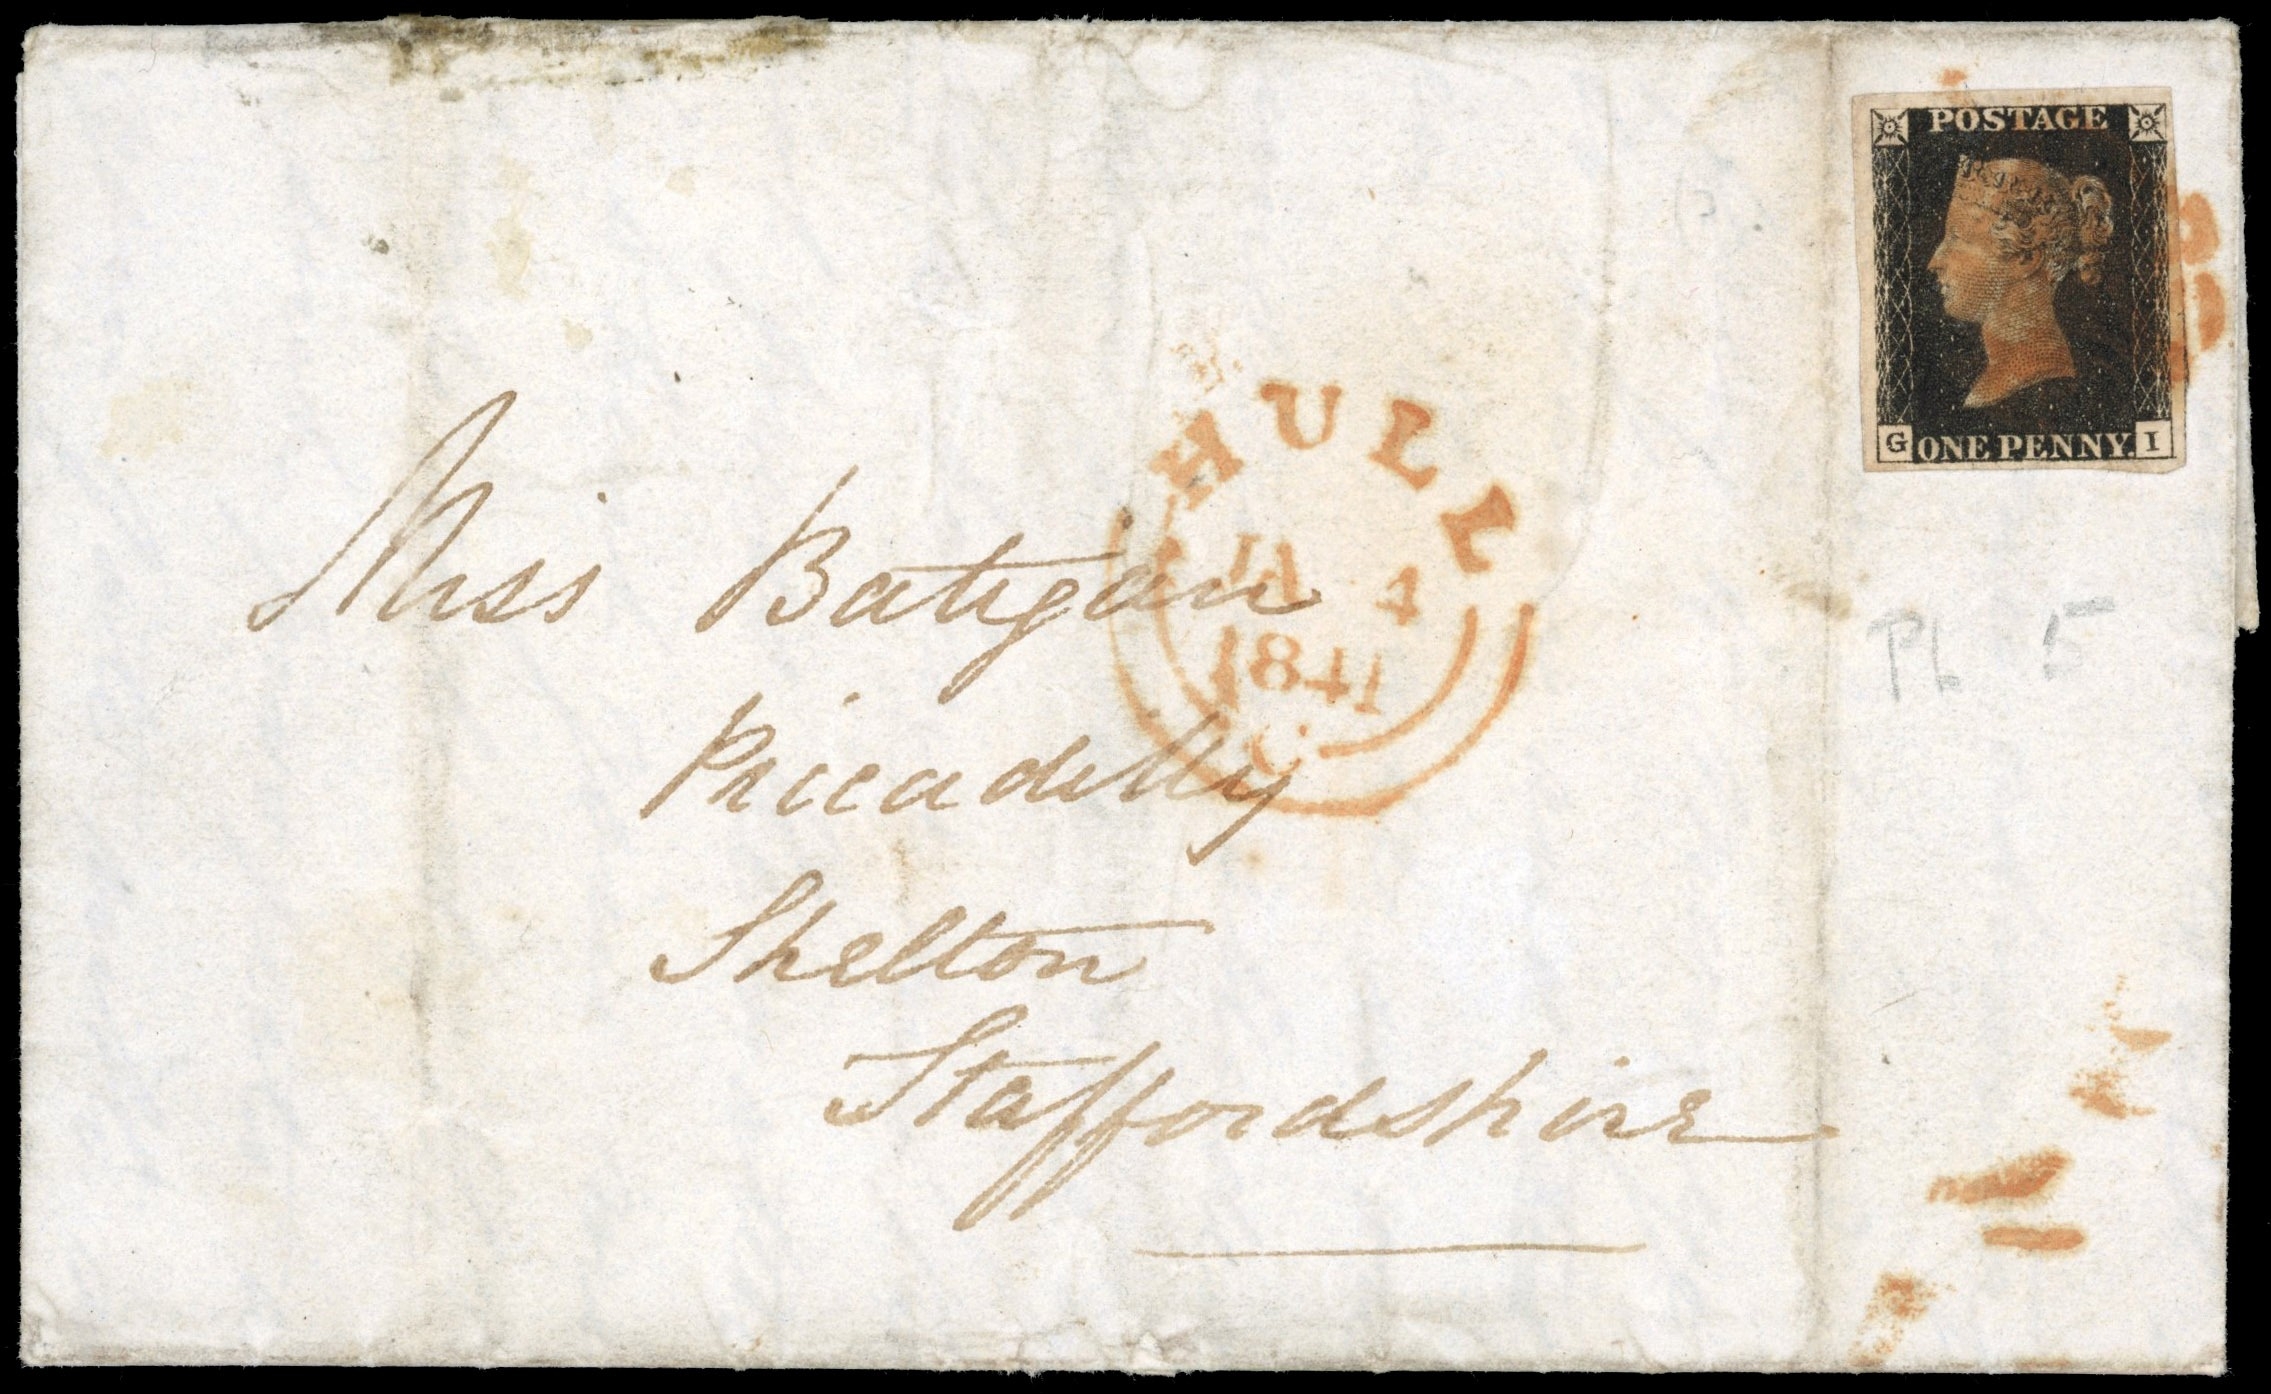 POSTAGE
G ONE PENNY. I
HULL
JA 4
1841
C
Miss Batigan
Piccadilly
Shelton
Staffordshire
PL 5